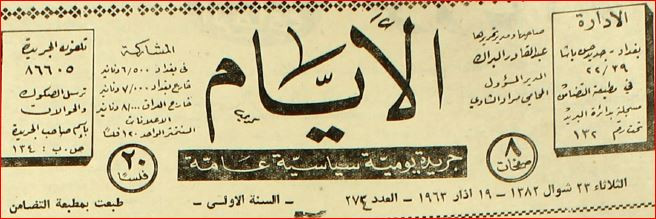 الادارة
بغداد - جديد حسن باشا
٢٢/٢٩
في مطبعة التضامن
مسجلة بدائرة البريد
تحت رقم ١٣٢
صاحبها ومدير تحريرها
عبدالقادر البراك
المدير المسؤول
المحامي مراد الشاوي
٨
صفحات
الأيام
جريدة يومية سياسية عامة
المشاركة
في بغداد ٦/٥٠٠ دنانير
خارج بغداد ٧/٠٠٠ دنانير
خارج العراق ٨/٠٠٠ دنانير
الاعلانات
السنتمتر الواحد ١٢٠ فلسا
٢٠
فلسا
تلفون الجريدة
٨٦٦٠٥
ترسل الصكوك
والحوالات
باسم صاحب الجريدة
ص . ب : ١٣٤
الثلاثاء ٢٣ شوال ١٣٨٢ - ١٩ اذار ١٩٦٣ - العدد ٢٧٤ - السنة الاولى -
طبعت بمطبعة التضامن